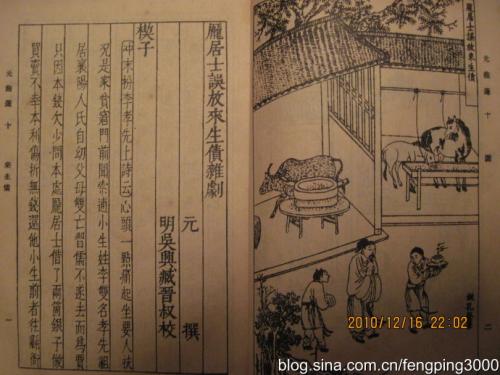 龐居士誤放來生債
元曲選 十 圖 二
龐居士誤放來生債雜劇
元 撰
明吳興臧晉叔校
楔子
冲末扮李孝先上詩云心頭一點痛起坐要人扶
況是家貧窘門前聞索逋小生姓李雙名孝先祖
居襄陽人氏自幼父母雙亡習儒不遂去而為賈
只因本錢欠少問本處龐居士借了兩箇銀子做
買賣不幸本利傷折無錢還他小生前者往縣衙
元曲選 十 來生債 一
2010/12/16 22:02
blog.sina.com.cn/fengping3000